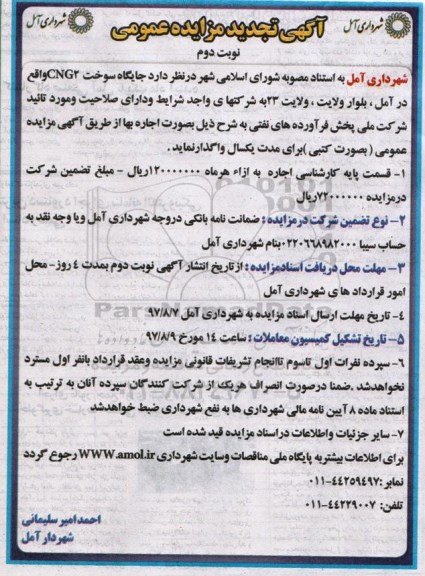 شهرداری آمل
آگهی تجدید مزایده عمومی
شهرداری آمل
نوبت دوم
شهرداری آمل به استناد مصوبه شورای اسلامی شهر درنظر دارد جایگاه سوخت CNG۲ واقع
در آمل ، بلوار ولایت ، ولایت ۲۳به شرکتهای واجد شرایط ودارای صلاحیت ومورد تائید
شرکت ملی پخش فرآورده های نفتی به شرح ذیل بصورت اجاره بها از طریق آگهی مزایده
عمومی ( بصورت کتبی )برای مدت یکسال واگذارنماید .
۱- قسمت پایه کارشناسی اجاره به ازاء هرماه ۱۲۰۰۰۰۰۰۰ریال - مبلغ تضمین شرکت
درمزایده ۷۲۰۰۰۰۰۰ریال
۲- نوع تضمین شرکت درمزایده : ضمانت نامه بانکی دروجه شهرداری آمل ویا وجه نقد به
حساب سیبا ۲۲۰۶۶۸۹۸۲۰۰۰بنام شهرداری آمل
۳- مهلت محل دریافت اسنادمزایده : ازتاریخ انتشار آگهی نوبت دوم بمدت ٤ روز- محل
امور قرارداد های شهرداری آمل
۴- تاریخ مهلت ارسال اسناد مزایده به شهرداری آمل ۹۷/۸/۷
۵- تاریخ تشکیل کمیسیون معاملات : ساعت ۱۴ مورخ ۹۷/۸/۹
۶- سپرده نفرات اول تاسوم تاانجام تشریفات قانونی مزایده وعقد قرارداد بانفر اول مسترد
نخواهدشد .ضمنا درصورت انصراف هریک از شرکت کنندگان سپرده آنان به ترتیب به
استناد ماده ۸ آیین نامه مالی شهرداری ها به نفع شهرداری ضبط خواهدشد
۷- سایر جزئیات واطلاعات دراسناد مزایده قید شده است
برای اطلاعات بیشتربه پایگاه ملی مناقصات وسایت شهرداری WWW.amol.ir رجوع گردد
نمابر:۴۴۲۵۹۴۹۷-۰۱۱
تلفن: ۴۴۲۲۹۰۰۷-۰۱۱
احمد امیر سلیمانی
شهردار آمل